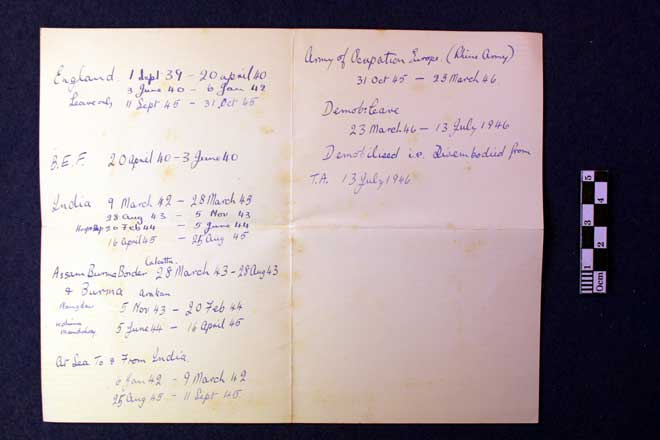 England 1 Sept 39 - 20 april 40
3 June 40 - 6 Jan 42
Leave only 11 Sept 45 - 31 Oct 45
B.E.F. 20 april 40 - 3 June 40
India 9 March 42 - 28 March 43
28 Aug 43 - 5 Nov 43
20 Feb 44 - 5 June 44
16 april 45 - 25 Aug 45
Calcutta.
Assam Burma Border 28 March 43 - 28 Aug 43
& Burma arakan
5 Nov 43 - 20 Feb 44
Kohima
Mandalay 5 June 44 - 16 April 45
At Sea To & From India.
6 Jan 42 - 9 March 42
25 Aug 45 - 11 Sept 45
Army of Ocupation Europe. (Rhine Army)
31 Oct 45 - 23 March 46.
Demob: leave
23 March 46 - 13 July 1946
Demobilised i.e. Disembodied from
T.A. 13 July 1946.
5
4
3
2
1
0cm